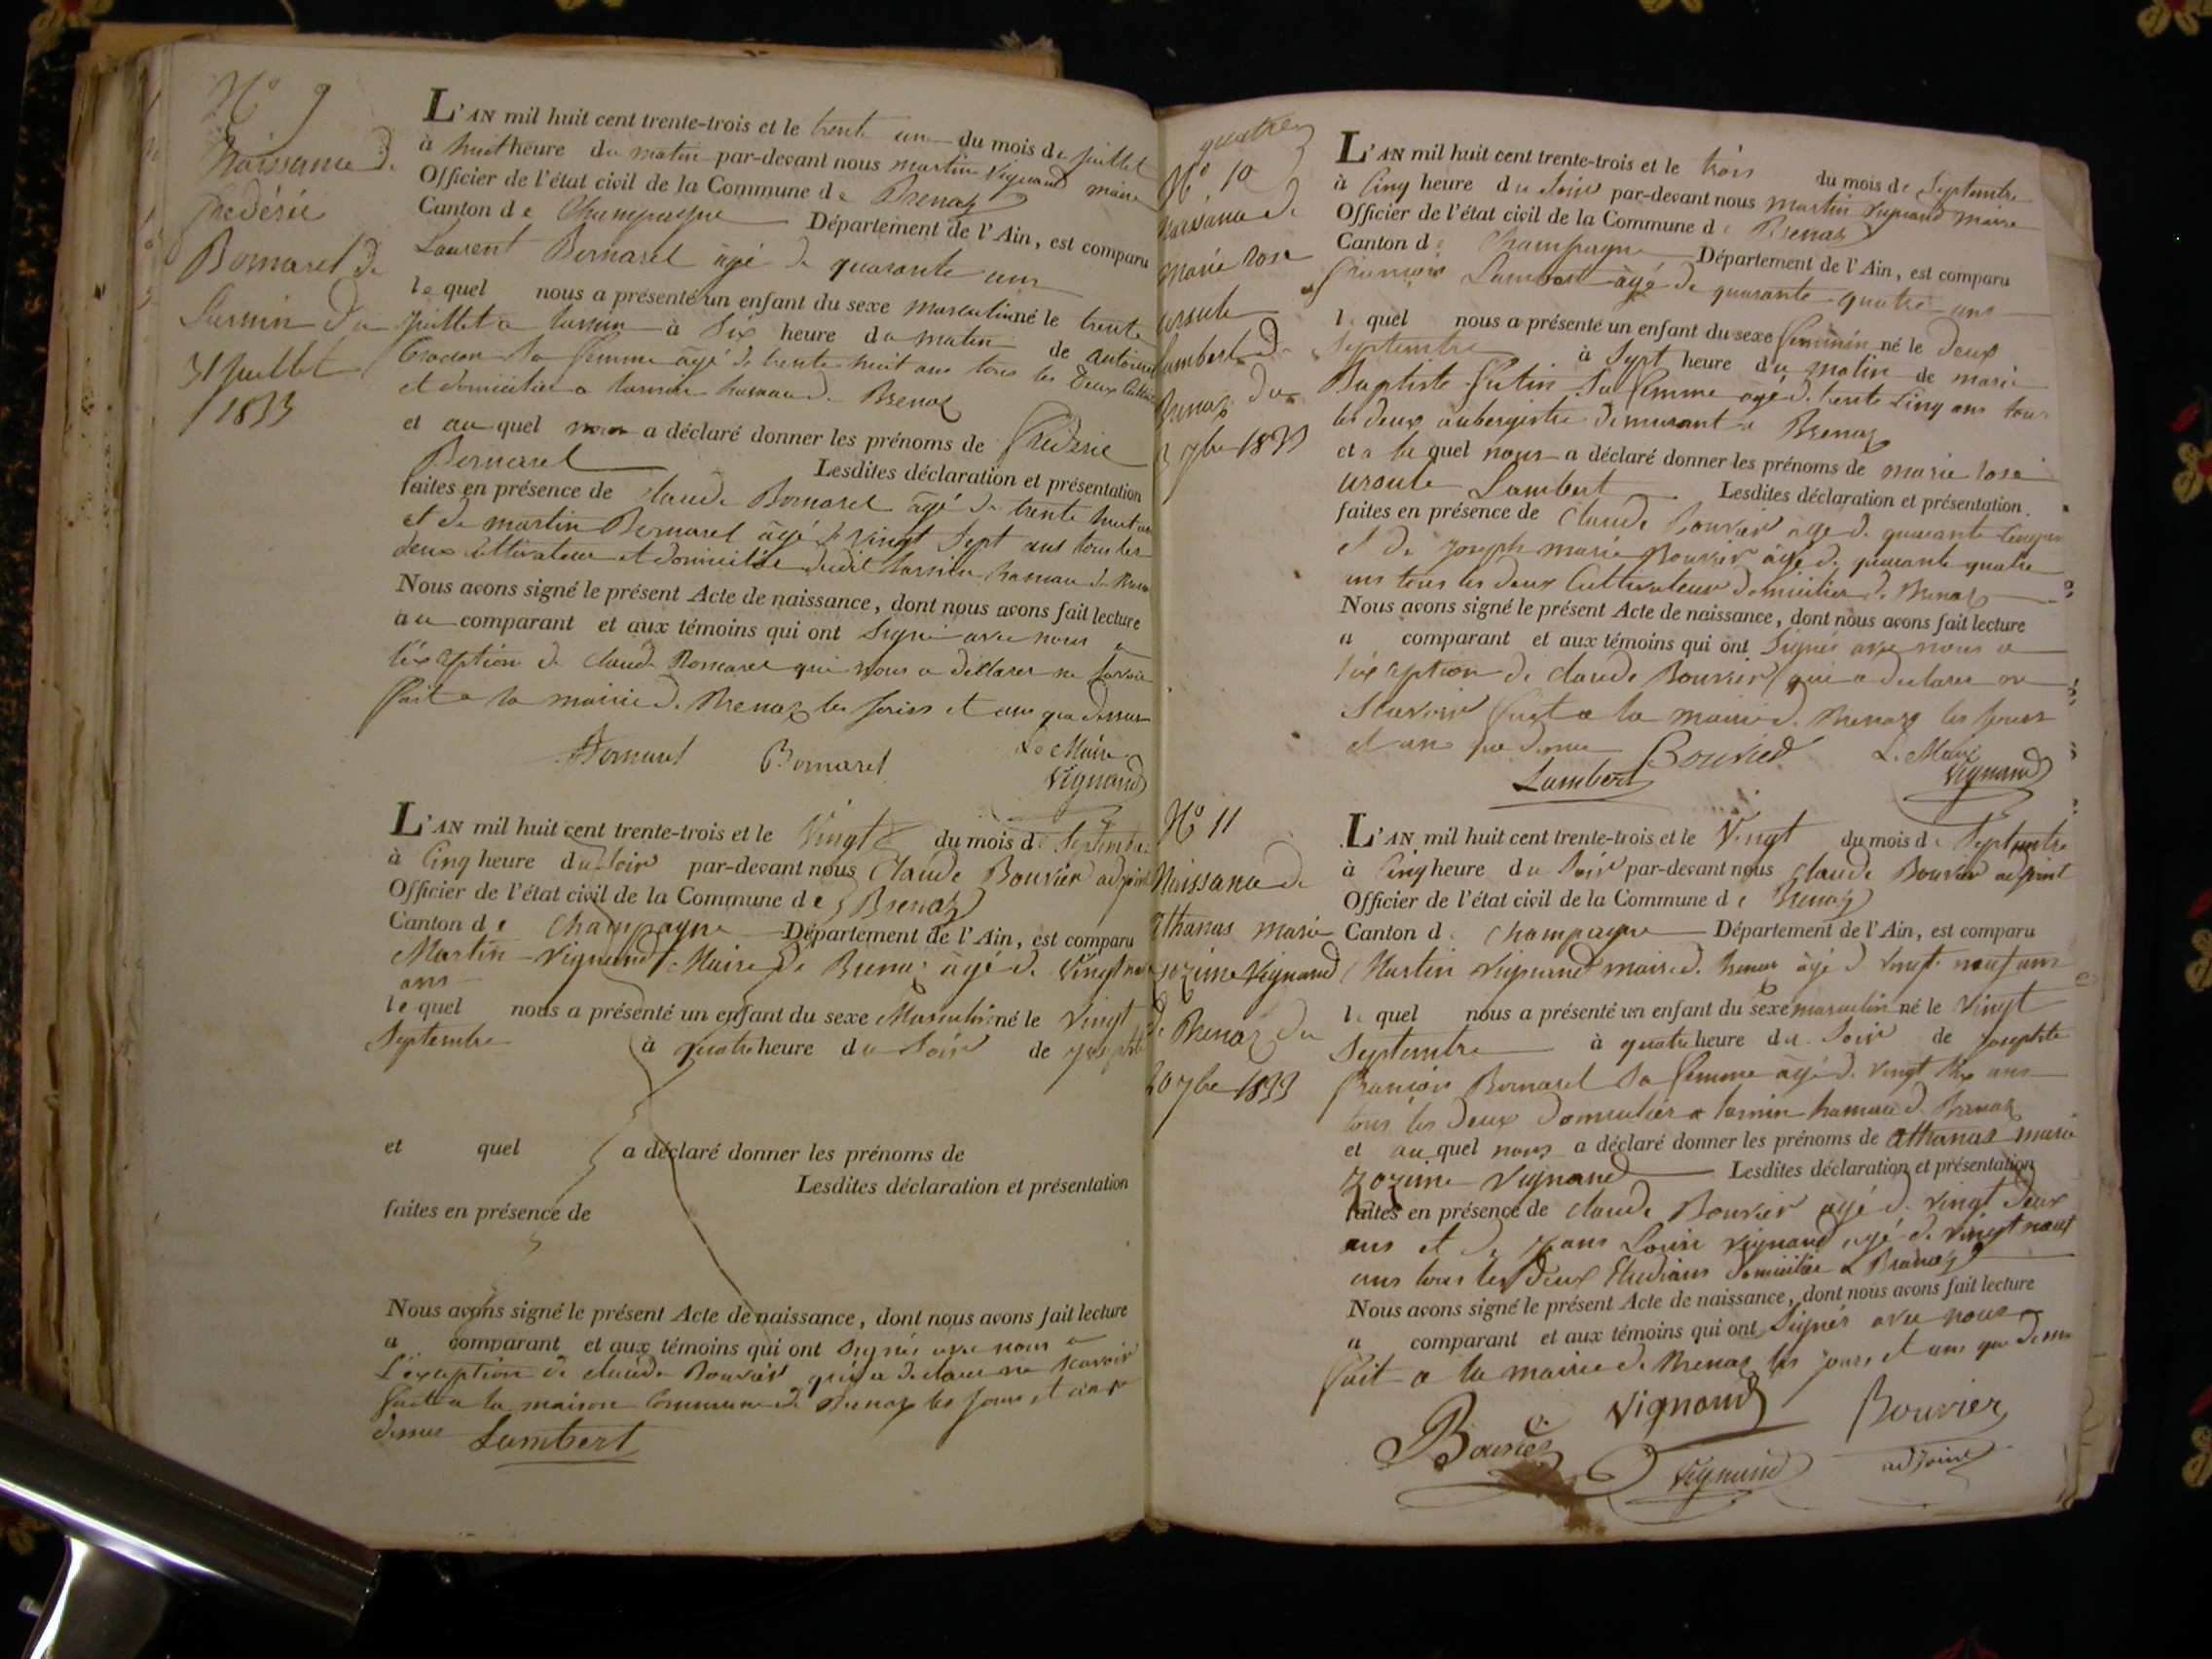 N° 9
Naissance de
frédéric
Bornarel de
Lusnin du
31 juillet
1833
L'AN mil huit cent trente-trois et le trente un du mois de juillet
à huit heure du matin par-devant nous martin Vignand maire
Officier de l'état civil de la Commune de Brenaz
Canton de Champagne Département de l'Ain, est comparu
Laurent Bornarel âgé de quarante ans
lequel nous a présenté un enfant du sexe masculin né le trente
juillet a à six heure du matin de antoinette
sa femme âgé de trente huit ans tous les deux
et domicilier a hameau de Brenaz
et au quel a déclaré donner les prénoms de frédéric
Bornarel Lesdites déclaration et présentation
faites en présence de claude Bornarel âgé de trente huit ans
et de martin Bornarel âgé de vingt sept ans tous les
deux cultivateur et domicilié dudit hameau de Brenaz
Nous avons signé le présent Acte de naissance, dont nous avons fait lecture
au comparant et aux témoins qui ont signé avec nous a
l'éxeption de claude Bornarel qui nous a déclarer ne savoir
fait a la mairie de Brenaz les jours et ans que dessus
Bornarel Bornarel Le Maire
Vignand
L'AN mil huit cent trente-trois et le Vingt du mois de Septembre
à Cinq heure du soir par-devant nous Claude Bouvier adjoint
Officier de l'état civil de la Commune de Brenaz
Canton de Champagne Département de l'Ain, est comparu
Martin Vignand Maire de Brenaz âgé de Vingt neuf
ans
lequel nous a présenté un enfant du sexe Masculin né le Vingt
Septembre à quatre heure du Soir de josephte
et quel a déclaré donner les prénoms de
Lesdites déclaration et présentation
faites en présence de
Nous avons signé le présent Acte de naissance, dont nous avons fait lecture
a comparant et aux témoins qui ont signés avec nous a
L'exeption de claude Bouvier qui a declarer ne scavoir
fait a la maison Commune de Brenaz les jours et ans
dessus Lambert
quatre
N° 10
naissance de
marie rose
ursule
Lambert de
Brenaz du
3 7bre 1833
L'AN mil huit cent trente-trois et le trois du mois de Septembre
à Cinq heure du soir par-devant nous martin Vignand maire
Officier de l'état civil de la Commune de Brenaz
Canton de Champagne Département de l'Ain, est comparu
françois Lambert âgé de quarante quatre ans
lequel nous a présenté un enfant du sexe féminin né le deux
septembre à sept heure du matin de marie
Baptiste sa femme âgé de trente cinq ans tous
les deux aubergiste demeurant a Brenaz
et a la quel nous a déclaré donner les prénoms de marie rose
ursule Lambert Lesdites déclaration et présentation
faites en présence de Claude Bouvier âgé de quarante
et de joseph marie Bouvier âgé de quarante quatre
ans tous les deux Cultivateur domicilier de Brenaz
Nous avons signé le présent Acte de naissance, dont nous avons fait lecture
a comparant et aux témoins qui ont signés avec nous a
l'éxeption de claude Bouvier qui a declarer ne
scavoir fait a la mairie de Brenaz les jours
et ans que dessus Bouvier Le Maire
Lambert Vignand
N° 11
Naissance de
athanas marie
zozime Vignand
de Brenaz du
20 7bre 1833
L'AN mil huit cent trente-trois et le Vingt du mois de Septembre
à Cinq heure du Soir par-devant nous Claude Bouvier adjoint
Officier de l'état civil de la Commune de Brenaz
Canton de Champagne Département de l'Ain, est comparu
Martin Vignand maire de Brenaz âgé de vingt neuf ans
lequel nous a présenté un enfant du sexe masculin né le vingt
septembre à quatre heure du Soir de josephte
Bornarel sa femme âgé de vingt six ans
tous les deux domicilier a hameau de Brenaz
et au quel nous a déclaré donner les prénoms de athanas marie
zozime Vignand Lesdites déclaration et présentation
faites en présence de claude Bouvier âgé de vingt deux
ans et de jean Louis Vignand âgé de vingt neuf
ans tous les deux Etudians domicilier a Brenaz
Nous avons signé le présent Acte de naissance, dont nous avons fait lecture
a comparant et aux témoins qui ont signés avec nous
fait a la mairie de Brenaz les jours et ans que dessus
Bouvier Vignand Bouvier
Vignand adjoint